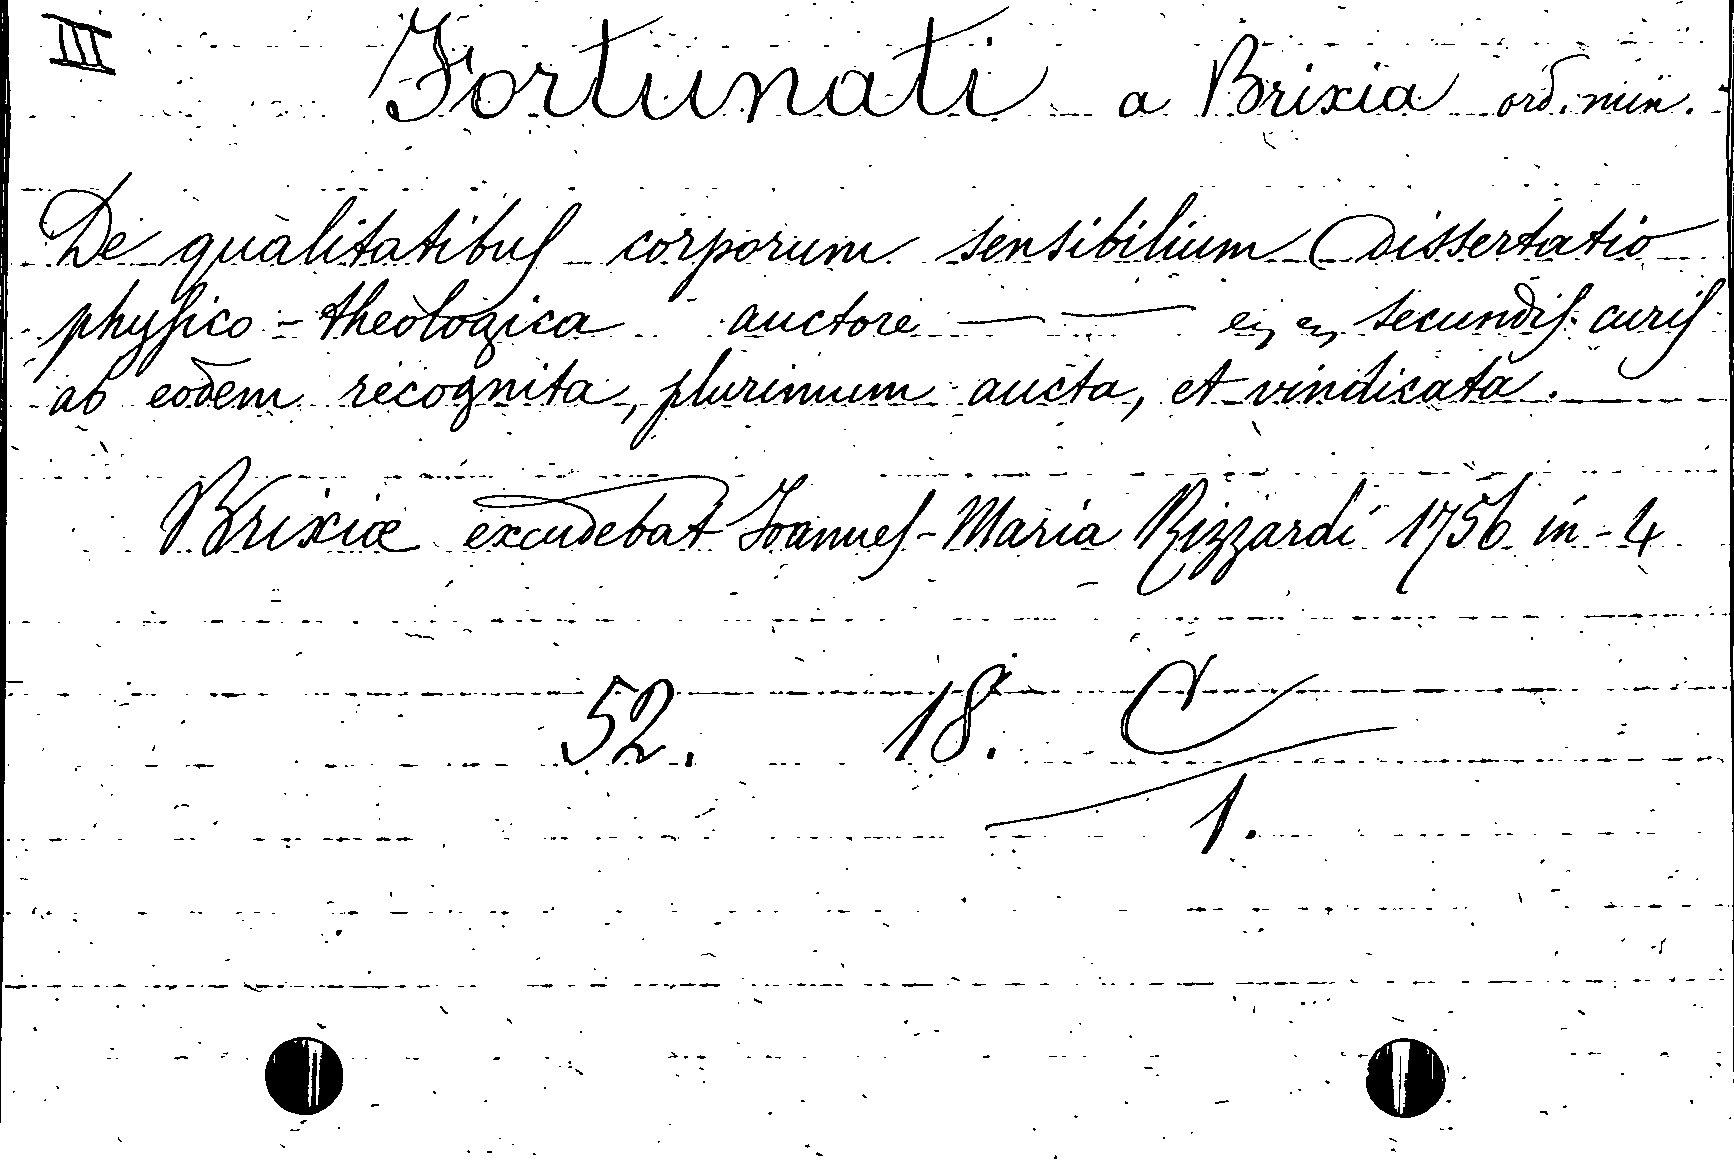 III Fortunati a Brixia ord. min.
De qualitatibus corporum sensibilium Dissertatio
physico-theologica auctore — — secundis curis
ab eodem recognita, plurimum aucta, et vindicata.
Brixiæ excudebat Joannes-Maria Rizzardi 1756 in-4
52. 18. C
1.